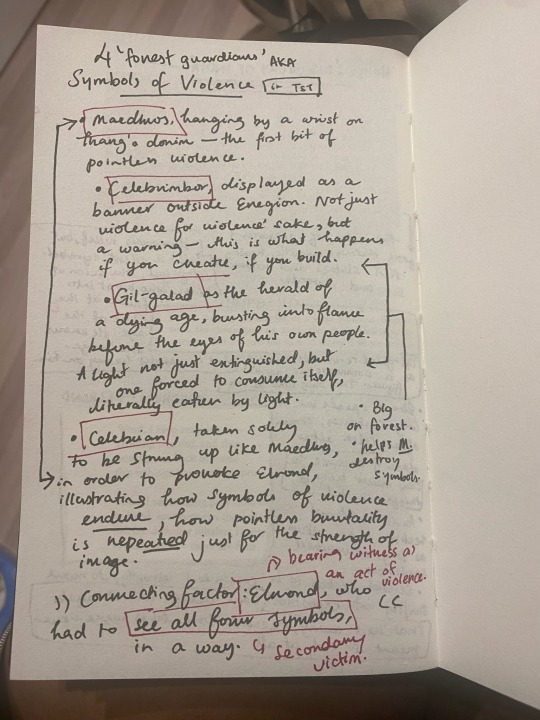 4 'forest guardians' AKA
Symbols of Violence in TST
• Maedhros, hanging by a wrist on
thang's donim — the first bit of
pointless violence.
• Celebrimbor, displayed as a
banner outside Eregion. Not just
violence for violence' sake, but
a warning — this is what happens
if you create, if you build.
• Gil-galad as the herald of
a dying age, bursting into flame
before the eyes of his own people.
A light not just extinguished, but
one forced to consume itself,
literally eaten by light.
• Big
on forest.
• helps M.
destroy
symbols.
• Celebrian, taken solely
to be strung up like Maedhros,
in order to provoke Elrond,
illustrating how symbols of violence
endure, how pointless brutality
is repeated just for the strength of
image.
1) Connecting factor: Elrond, who
had to see all four symbols,
in a way.
bearing witness as
an act of
violence.
CC
secondary
victim.